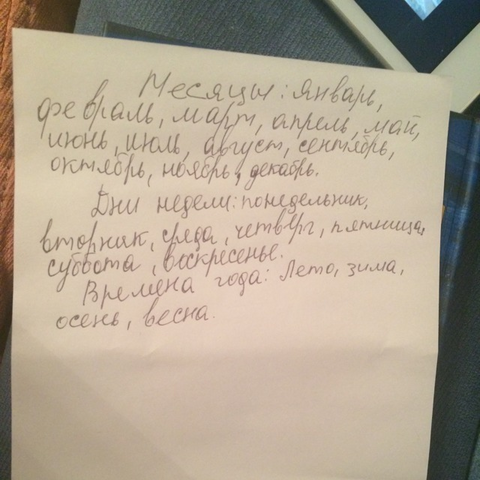 Месяцы: январь,
февраль, март, апрель, май,
июнь, июль, август, сентябрь,
октябрь, ноябрь, декабрь.
Дни недели: понедельник,
вторник, среда, четверг, пятница,
суббота, воскресенье.
Времена года: Лето, зима,
осень, весна.